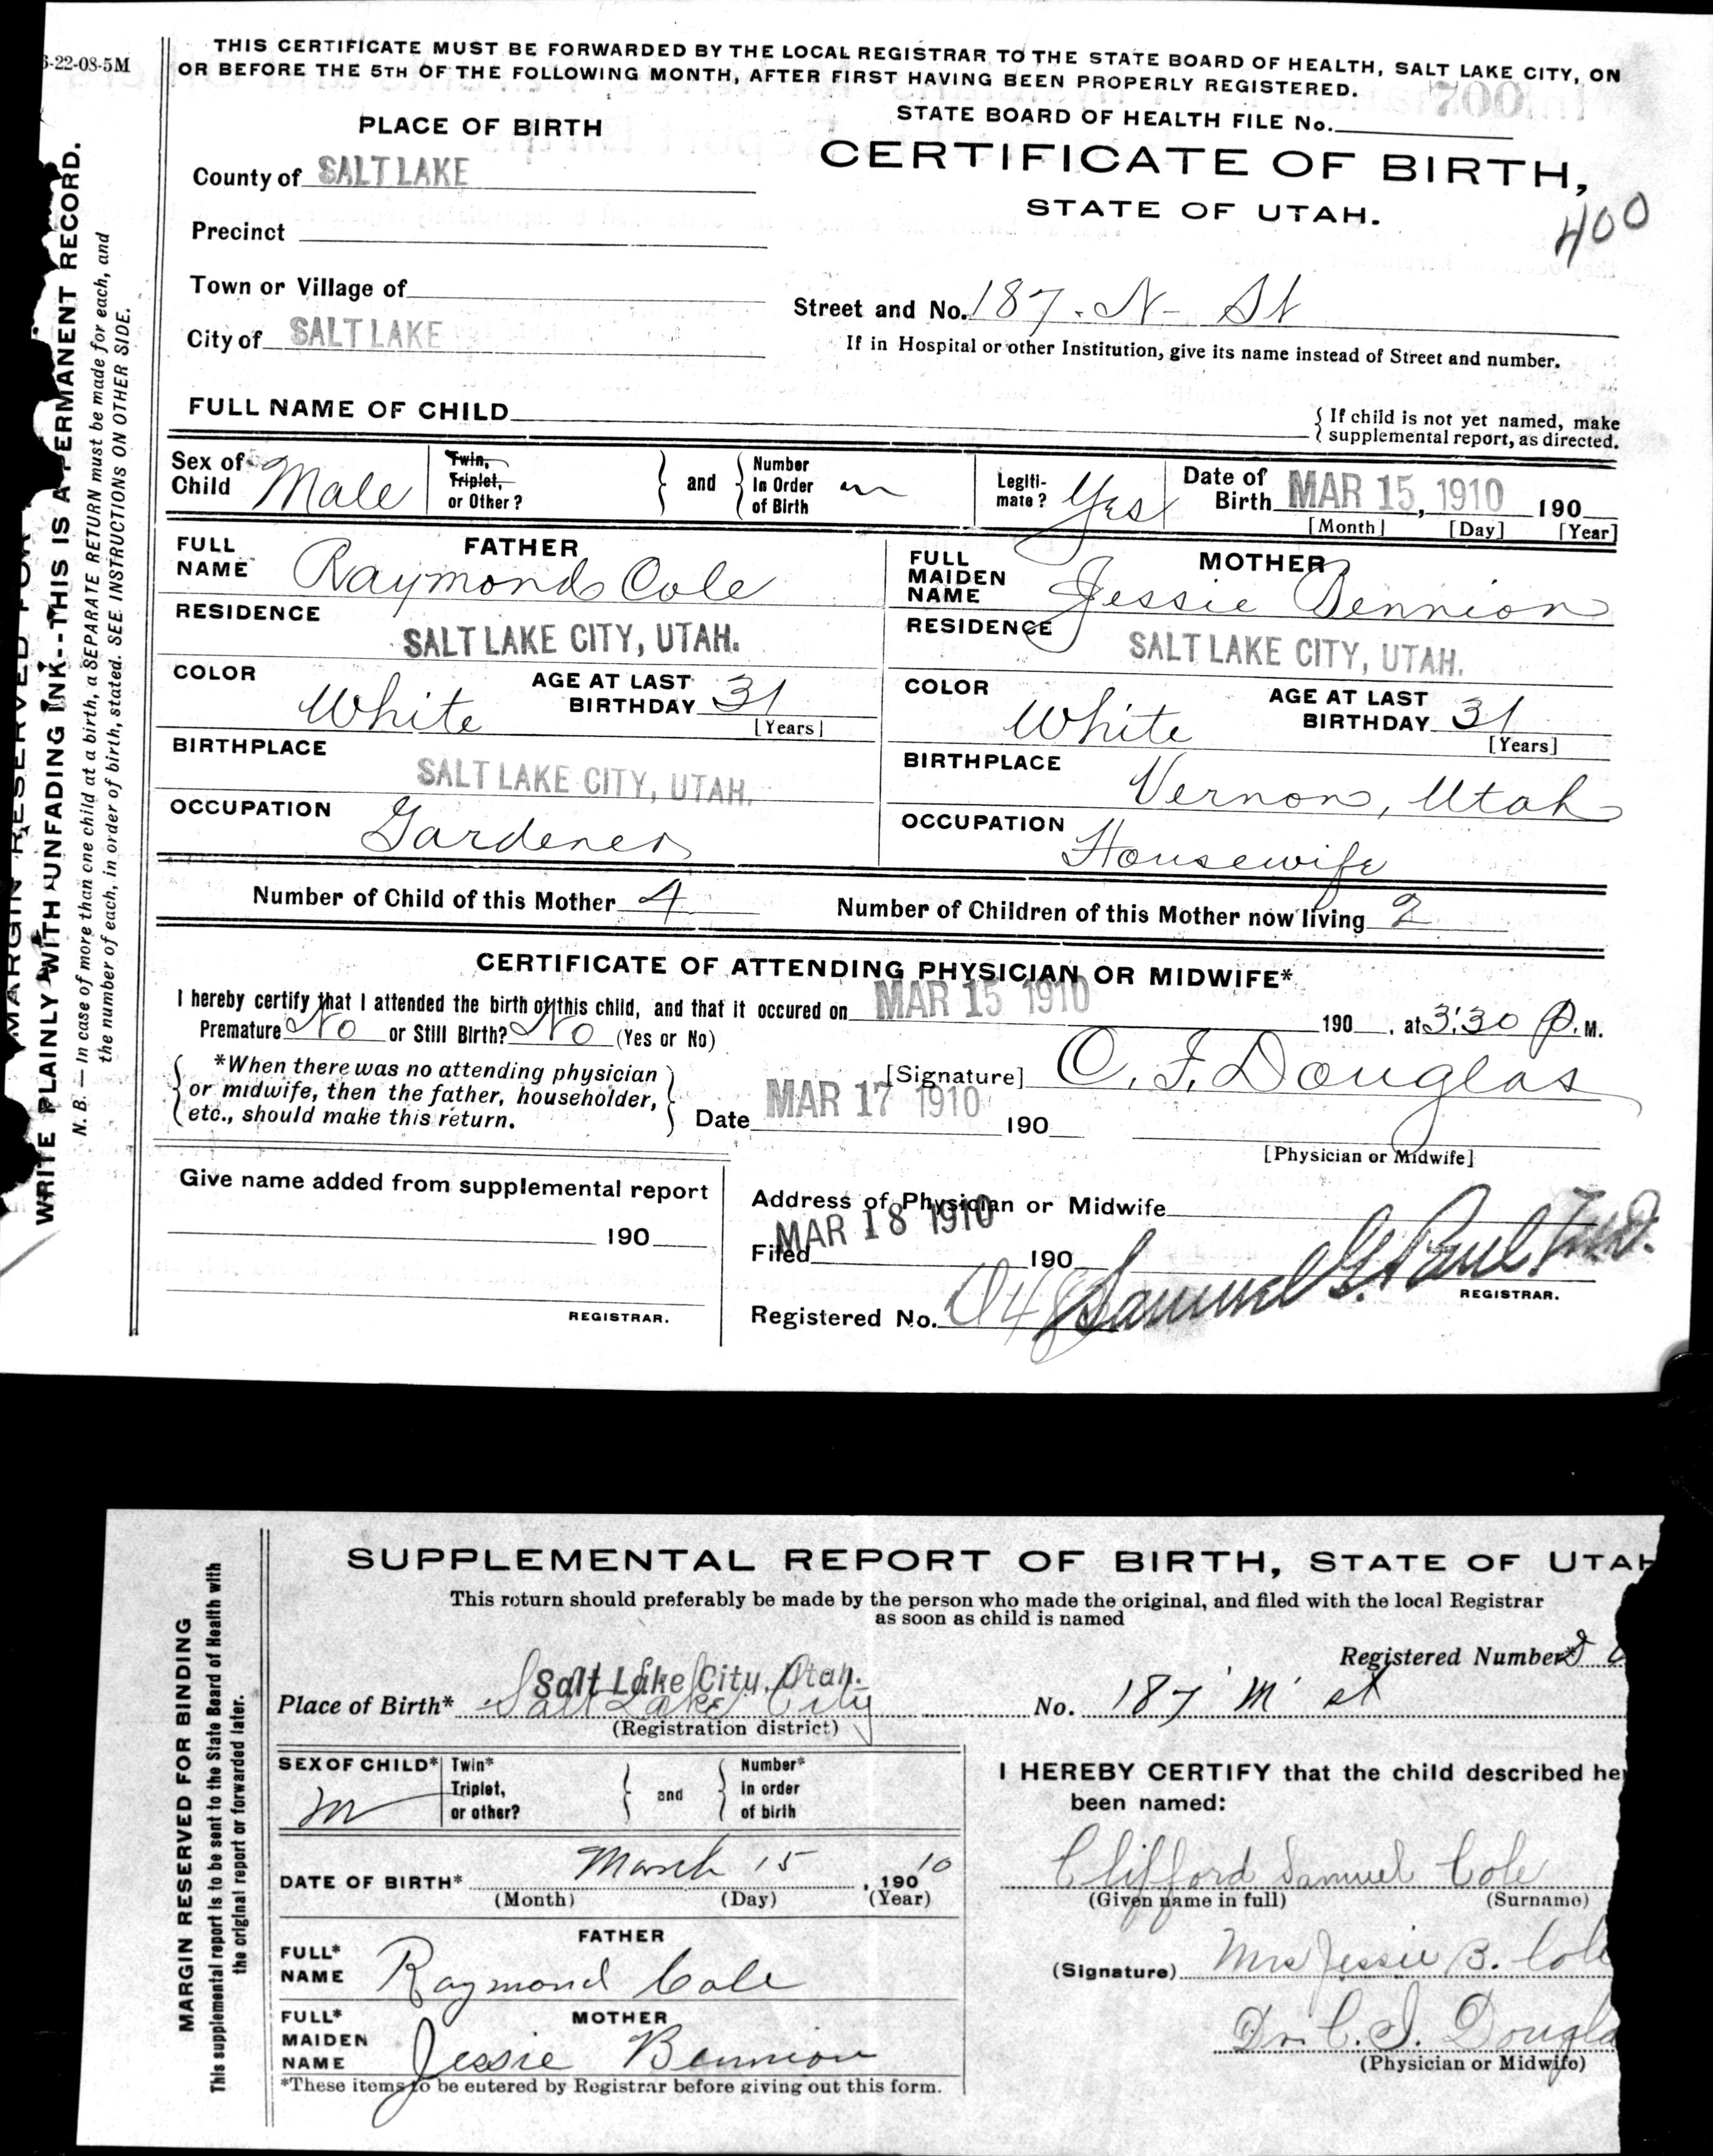 6-22-08-5M
THIS CERTIFICATE MUST BE FORWARDED BY THE LOCAL REGISTRAR TO THE STATE BOARD OF HEALTH, SALT LAKE CITY, ON
OR BEFORE THE 5TH OF THE FOLLOWING MONTH, AFTER FIRST HAVING BEEN PROPERLY REGISTERED.
700
STATE BOARD OF HEALTH FILE No.
PLACE OF BIRTH
CERTIFICATE OF BIRTH,
STATE OF UTAH.
400
County of SALT LAKE
Precinct
Town or Village of
Street and No. 187. N- St
City of SALT LAKE
If in Hospital or other Institution, give its name instead of Street and number.
FULL NAME OF CHILD
{ If child is not yet named, make
supplemental report, as directed.
Sex of Child Male
Twin, Triplet, or Other? } and { Number In Order of Birth
Legiti-mate? Yes
Date of Birth MAR 15, 1910 190
[Month] [Day] [Year]
FATHER
FULL NAME Raymond Cole
RESIDENCE
SALT LAKE CITY, UTAH.
COLOR White AGE AT LAST BIRTHDAY 31
[Years]
BIRTHPLACE
SALT LAKE CITY, UTAH.
OCCUPATION Gardener
MOTHER
FULL MAIDEN NAME Jessie Bennion
RESIDENCE
SALT LAKE CITY, UTAH.
COLOR White AGE AT LAST BIRTHDAY 31
[Years]
BIRTHPLACE Vernon, Utah
OCCUPATION Housewife
Number of Child of this Mother 4 Number of Children of this Mother now living 2
CERTIFICATE OF ATTENDING PHYSICIAN OR MIDWIFE*
I hereby certify that I attended the birth of this child, and that it occured on MAR 15 1910 190 , at 3:30 P. M.
Premature No or Still Birth? No (Yes or No)
{ *When there was no attending physician
or midwife, then the father, householder,
etc., should make this return. }
[Signature] C. F. Douglas
Date MAR 17 1910 190
[Physician or Midwife]
Give name added from supplemental report
190
REGISTRAR.
Address of Physician or Midwife
Filed MAR 18 1910 190
Samuel G. Paul M.D.
REGISTRAR.
Registered No.
MARGIN RESERVED FOR
WRITE PLAINLY WITH UNFADING INK--THIS IS A PERMANENT RECORD.
N. B. — In case of more than one child at a birth, a SEPARATE RETURN must be made for each, and
the number of each, in order of birth, stated. SEE INSTRUCTIONS ON OTHER SIDE.
SUPPLEMENTAL REPORT OF BIRTH, STATE OF UTAH
This return should preferably be made by the person who made the original, and filed with the local Registrar
as soon as child is named
Registered Number*
Salt Lake City, Utah.
Place of Birth* Salt Lake City No. 187 'M' st
(Registration district)
SEX OF CHILD* M
Twin* Triplet, or other? } and { Number* In order of birth
DATE OF BIRTH* March 15, 19010
(Month) (Day) (Year)
FATHER
FULL* NAME Raymond Cole
MOTHER
FULL* MAIDEN NAME Jessie Bennion
*These items to be entered by Registrar before giving out this form.
I HEREBY CERTIFY that the child described her
been named:
Clifford Samuel Cole
(Given name in full) (Surname)
(Signature) Mrs Jessie B. Cole
Dr. C. F. Dougla
(Physician or Midwife)
MARGIN RESERVED FOR BINDING
This supplemental report is to be sent to the State Board of Health with
the original report or forwarded later.